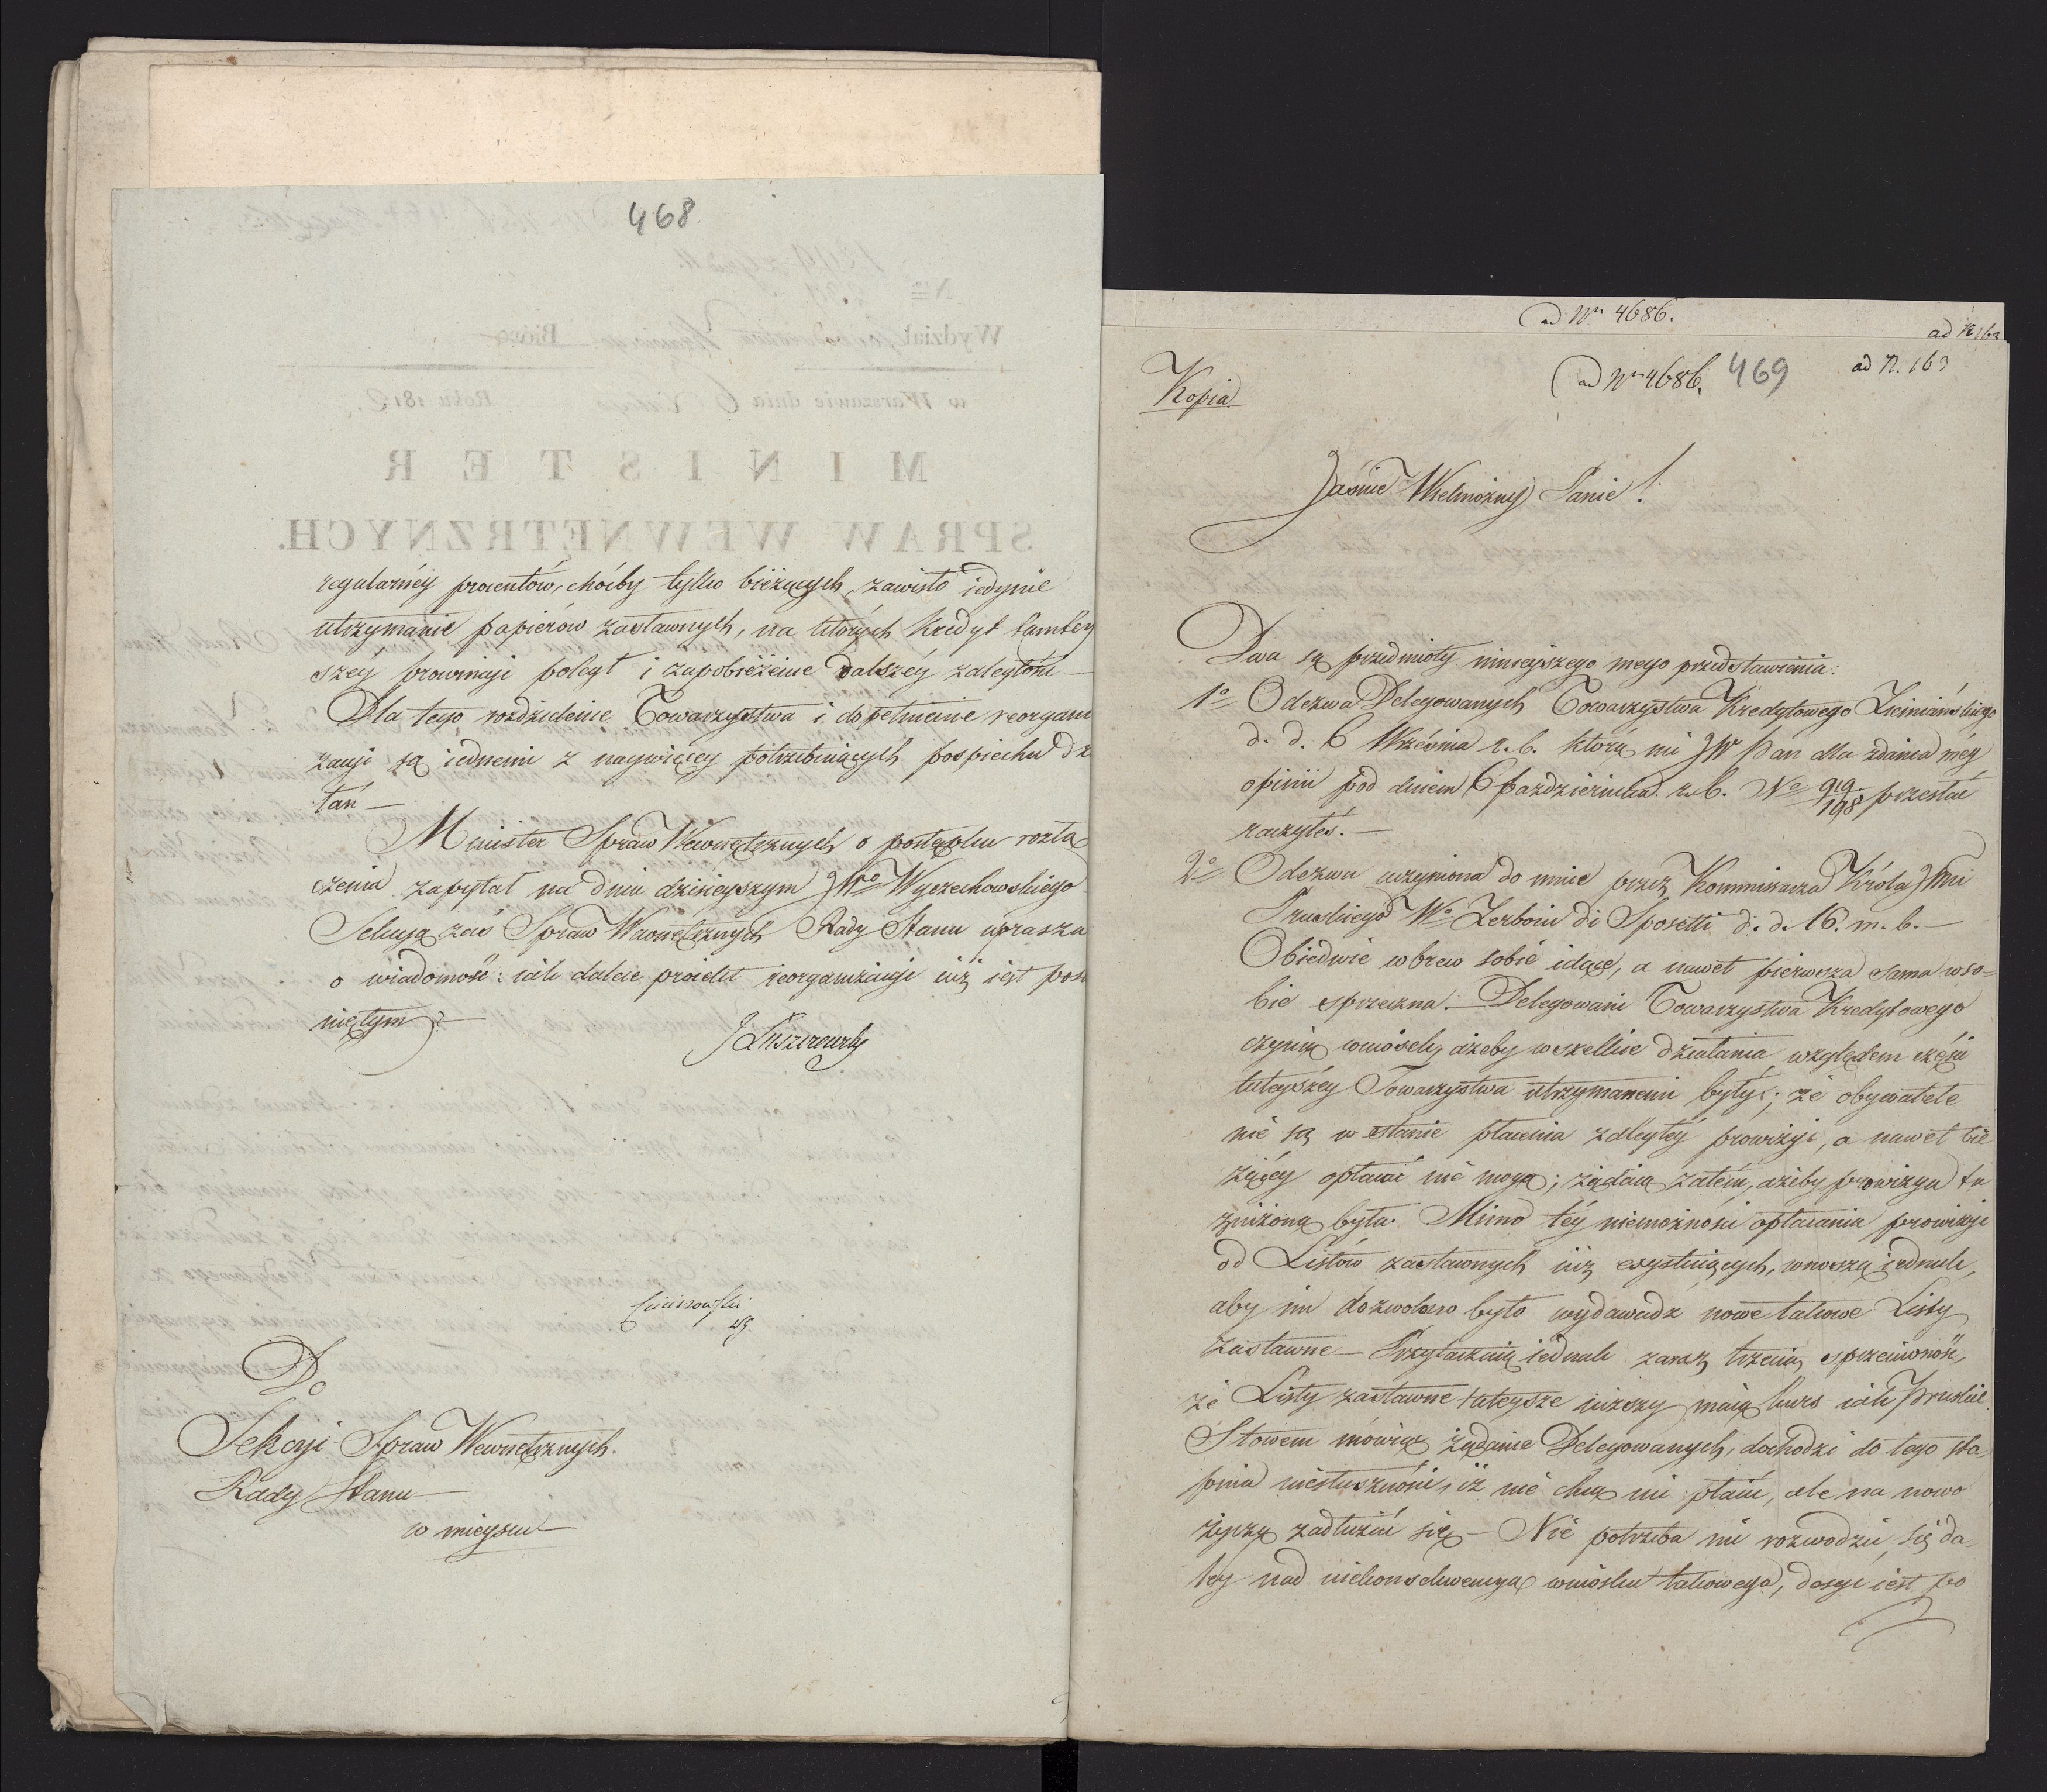 468
regularnéy procentów, choćby tylko bieżących, zawisło iedynie
utrzymanie papiérów zastawnych, na których Kredyt tamtey
széy prowincyi poległ i zapobieżenie dalszéy zaległości —
Dla tego rozdzielenie Towarzystwa i dopełnienie reorgani
zacyi są iednemi z naywięcéy potrzebuiących pospiechu dz
łań —
Minister Spraw Wewnętrznych o postępku rozłą
czenia zapytał na dniu dzisieyszym JWo Wyczechowskiego
Sekcyą zaś Spraw Wewnętrznych Rady Stanu uprasza
o wiadomość: iak dalece proiekt reorganizacyi iuż iest posu
niętym?
J Łuszczewsky
Do
Sekcyi Spraw Wewnętrznych
Rady Stanu
w mieyscu
ad Nr 4686.
ad N 163
ad Nr 4686. 469 ad N. 163
Kopia
Jaśnie Wielmożny Panie!
Dwa są przedmioty ninieyszego mego przedstawienia:
1o Odezwa Delegowanych Towarzystwa Kredytowego Ziemiańskiego
d. d. 6 Września r. b. którą mi JW Pan dla zdania méy
opinii pod dniem 6 Października r. b. No 919/198 przesłać
raczyłeś. —
2o Odezwa uczyniona do mnie przez Kommissarza Króla Jmci
Pruskiego Wo Zerboni di Sposetti d. d. 16. m. b. —
Obiedwie wbrew sobie idące, a nawet pierwsza sama w so-
bie sprzeczna. — Delegowani Towarzystwa Kredytowego
czynią wniosek, ażeby wszelkie działania względem części
tuteyszéy Towarzystwa utrzymanemi były; że obywatele
nie są w stanie płacenia zaległéy prowizyi, a nawet bie
żącéy opłacać nie mogą; żądaią zatém, ażeby prowizya ta
zniżoną była. Mimo téy niemożności opłacania prowizyi
od Listów zastawnych iuż exystuiących, wnoszą iednak,
aby im dozwolono było wydawadź nowe takowe Listy
Zastawne — Przytaczaią iednak zaraz trzecią sprzeciwność,
że Listy zastawne tuteysze niższy maią kurs iak Pruskie.
Słowem mówiąc żądanie Delegowanych, dochodzi do tego sto-
pnia niesłuszności, iż nie chcą nic płacić, ale na nowo
życzą zadłużić się — Nie potrzeba mi rozwodzić się da-
ley nad niekonsekwencyą wniosku takowego, dosyć iest po